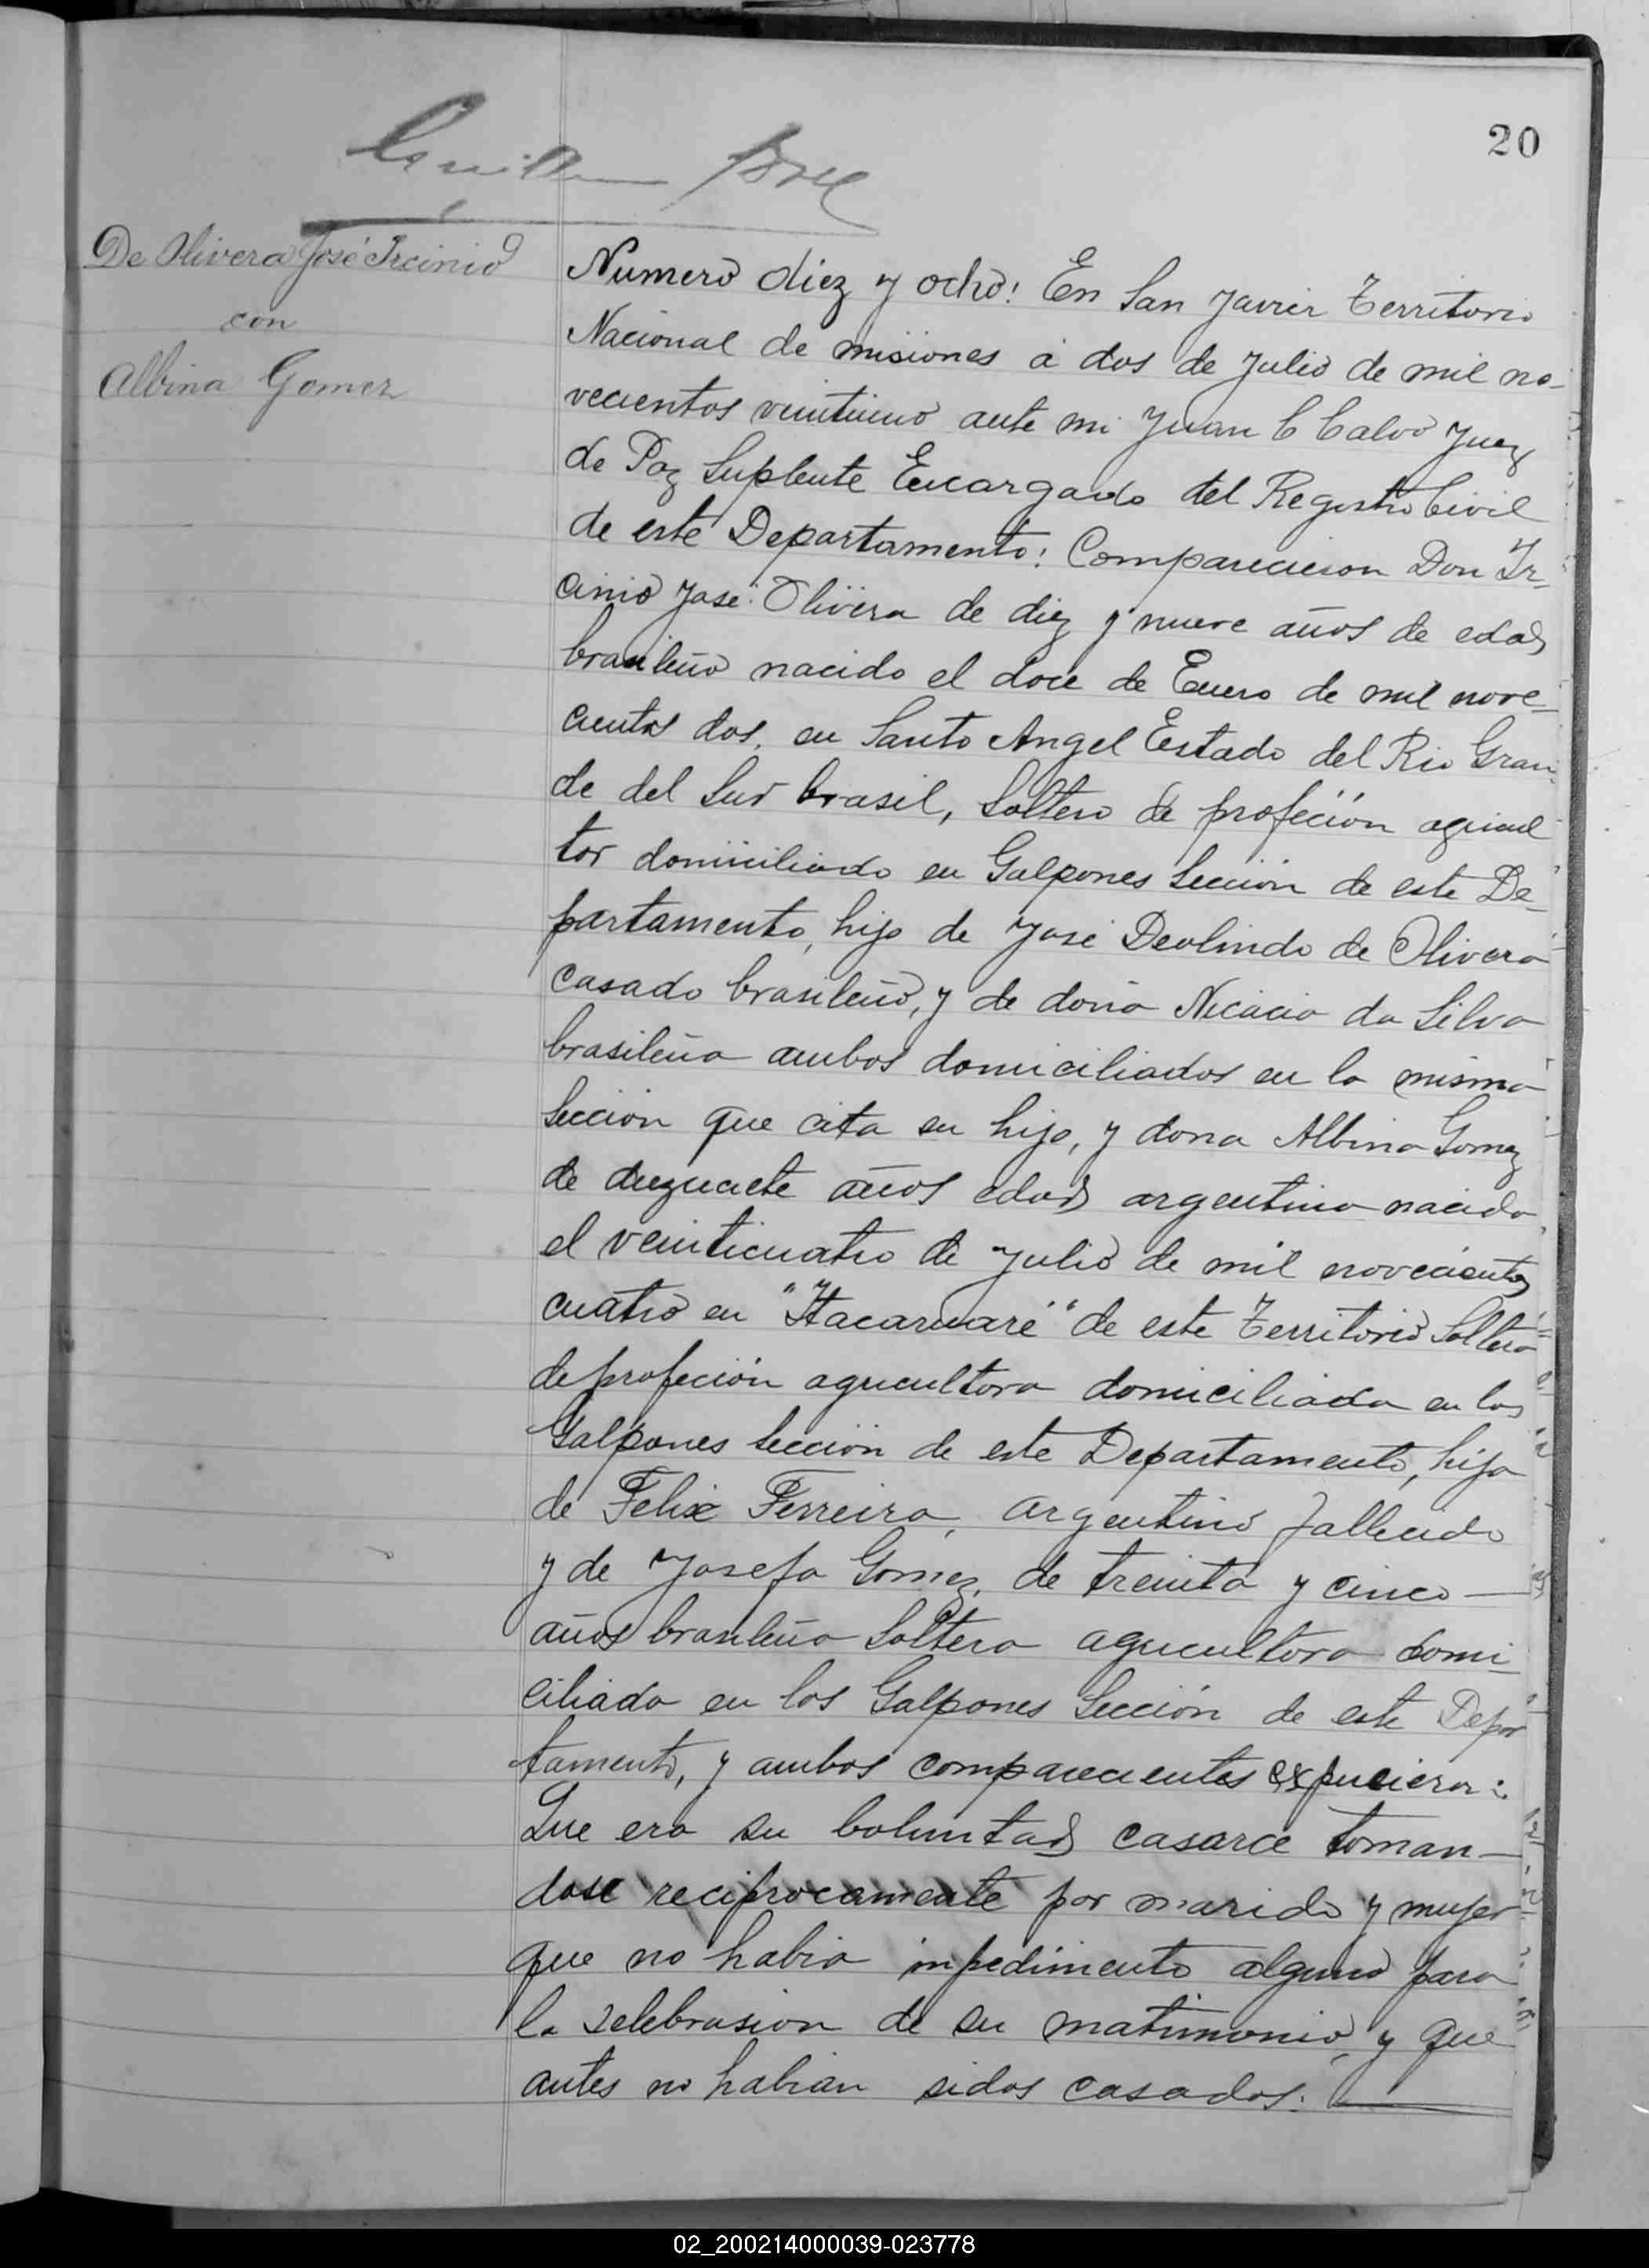 20
De Olivera José Ircinio
con
Albina Gomez
Numero diez y ocho: En San Javier Territorio
Nacional de misiones á dos de Julio de mil no-
vecientos veintiuno ante mi Juan C Calvo Juez
de Paz Suplente Encargado del Registro Civil
de este Departamento: Comparecieron Don Ir-
cinio José Olivera de diez y nueve años de edad
brasileño nacido el doce de Enero de mil nove-
cientos dos, en Santo Angel Estado del Rio Gran-
de del Sur brasil, Soltero de profeción agricul
tor domiciliado en Galpones Sección de este De-
partamento, hijo de José Deolindo de Olivera
casado brasileño, y de doña Nicacia da Silva
brasileña ambos domiciliados en la misma
Sección que cita su hijo, y dona Albina Gomez
de diezysiete años edad argentina nacida
el veinticuatro de Julio de mil novecientos
cuatro en "Itacaruaré" de este Territorio Soltera
de profeción agricultora domiciliada en los
Galpones Sección de este Departamento, hija
de Felix Ferreira, argentino fallecido
y de Josefa Gomez, de treinta y cinco
años brasileña Soltera agricultora domi-
ciliada en los Galpones Sección de este Depar
tamento, y ambos comparecientes expucieron:
Que era su boluntad casarce toman-
dose reciprocamente por marido y mujer
que no habia inpedimento alguno para
la zelebrasion de su matrimonio, y que
antes no habian sidos casados.
02_200214000039-023778